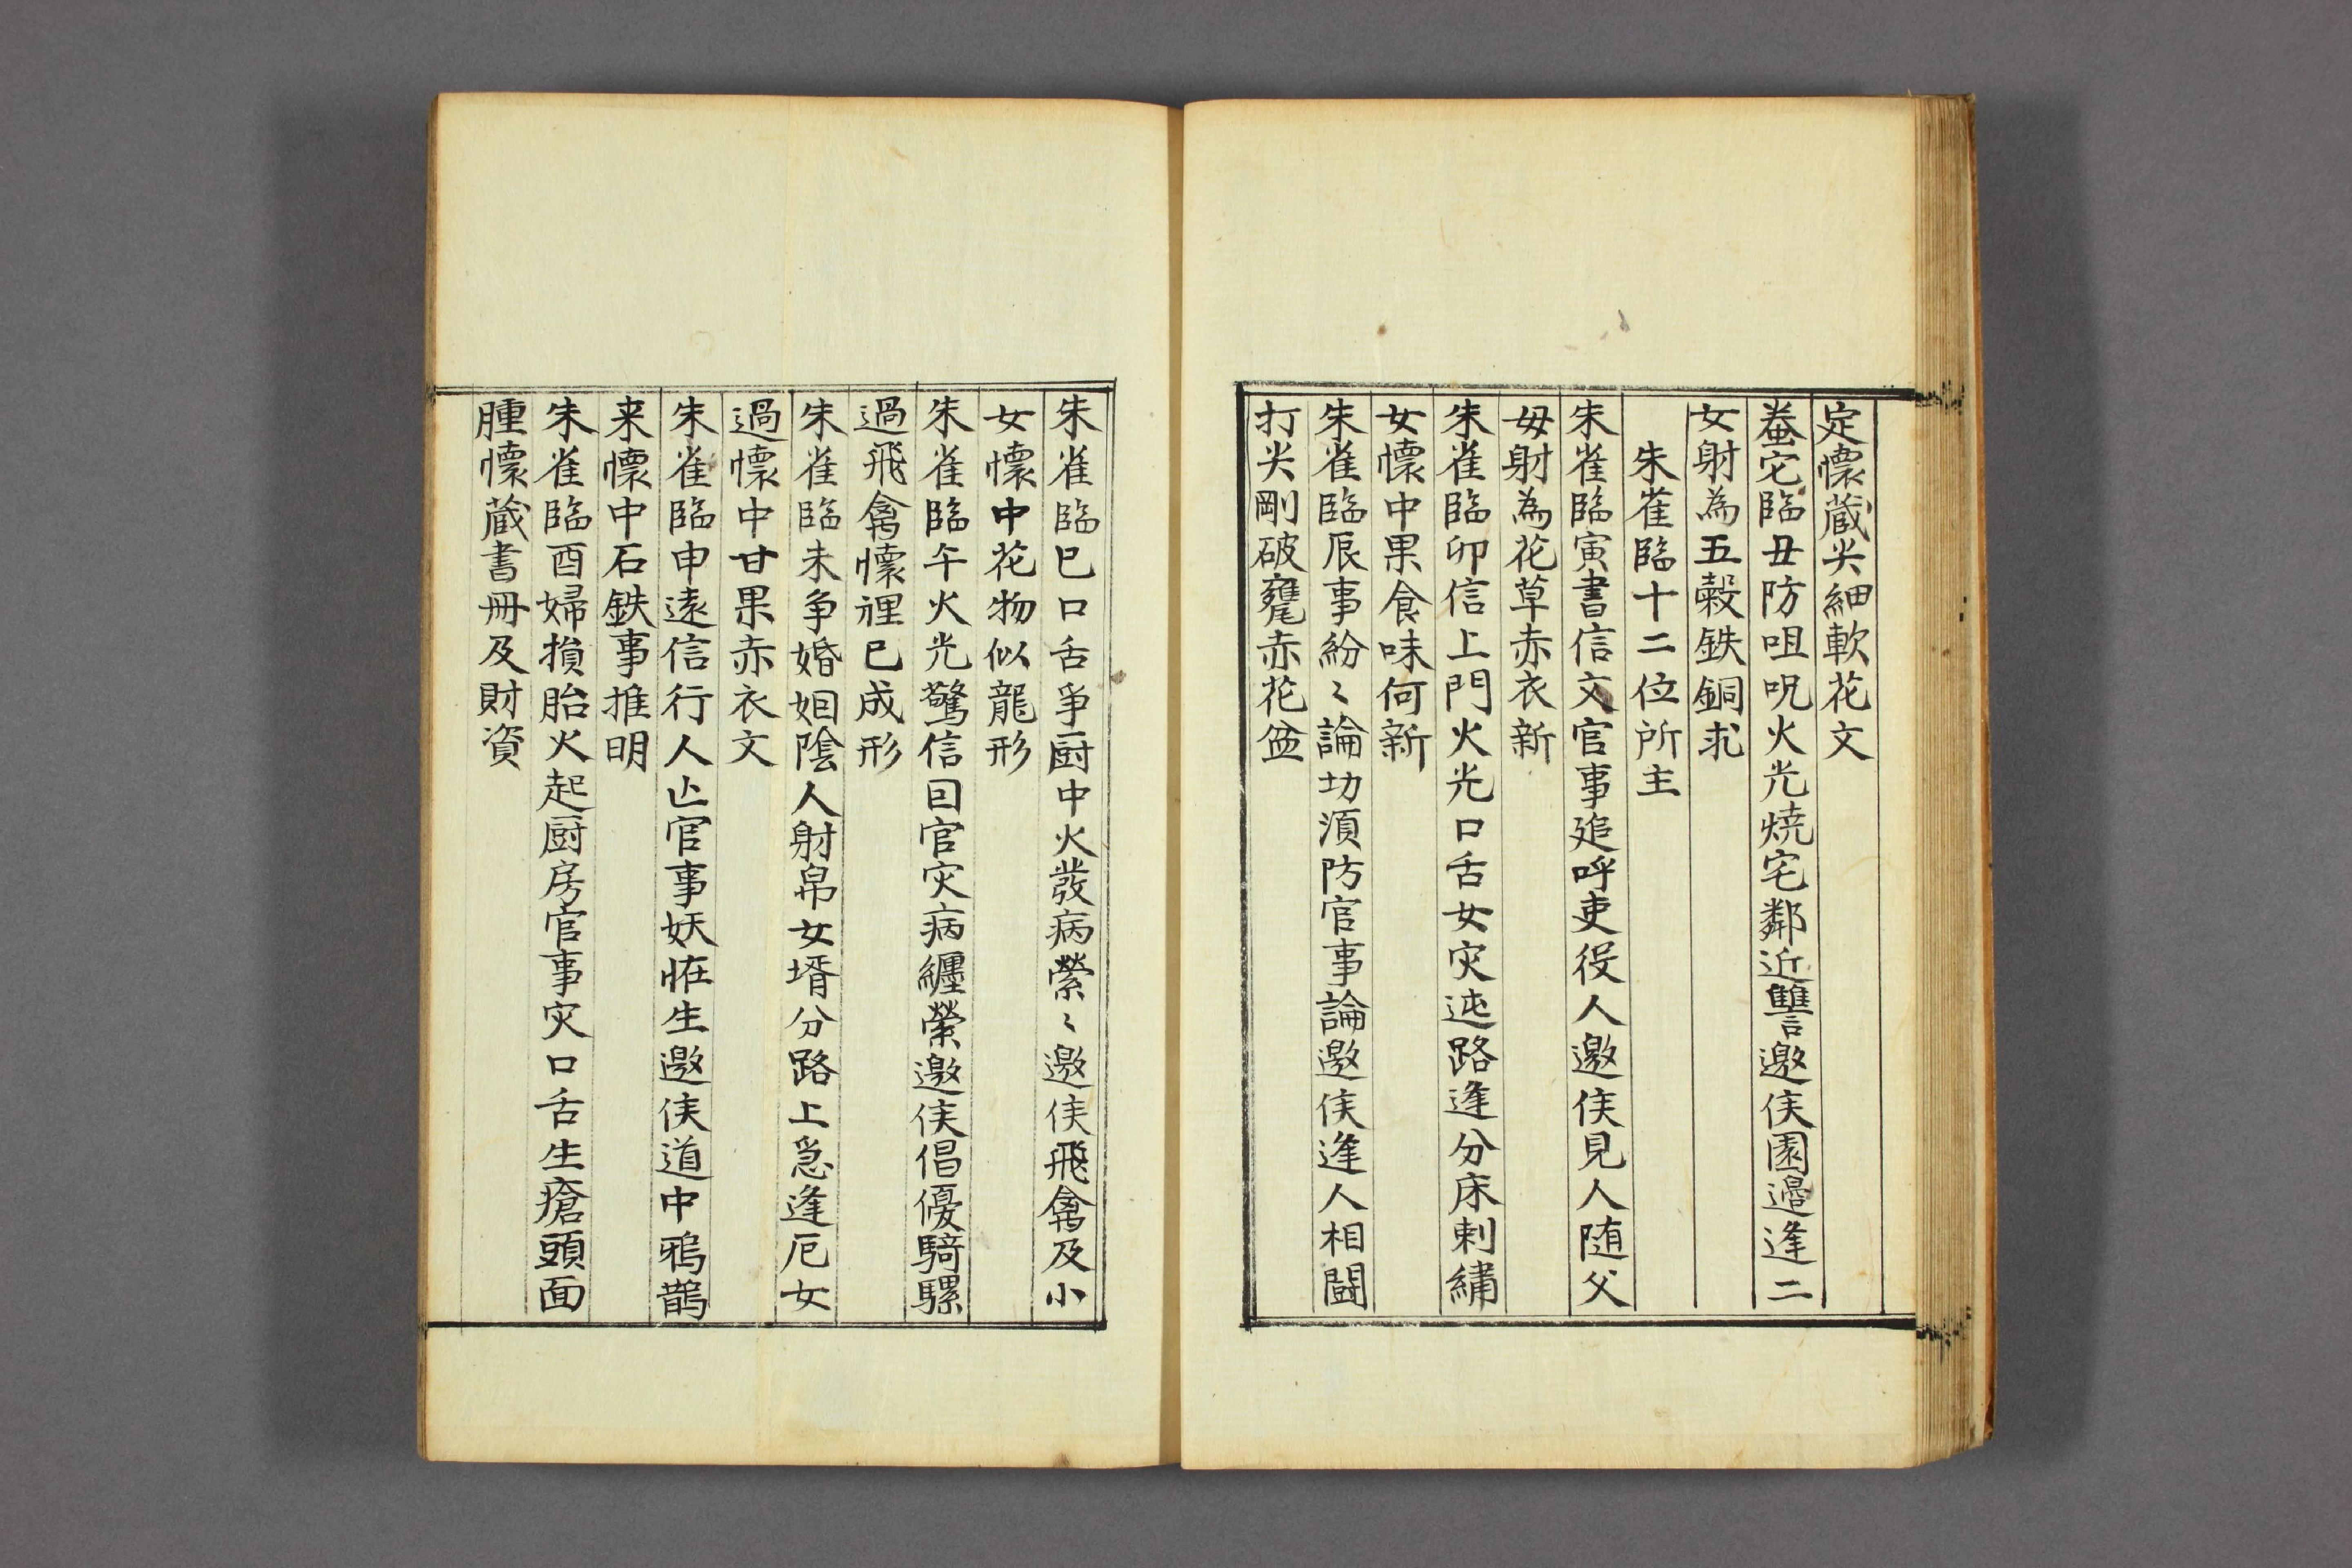 定懷蔵尖細軟花文
螣它臨丑防咀呪火光燒宅鄰近讐邀侯園邉逢二
女射為五穀鉄銅求
朱雀臨十二位所主
朱雀臨寅書信文官事追呼吏役人邀侯見人随父
母射為花草赤衣新
朱雀臨卯信上門火光口舌女灾迍路逢分床刺繡
女懷中果食味何新
朱雀臨辰事紛〻論功須防官事論邀侯逢人相鬪
打尖剛破甕赤花盆
朱雀臨巳口舌爭厨中火發病縈〻邀侯飛禽及小
女懷中花物似龍形
朱雀臨午火光驚信囙官灾病纒縈邀侯倡優騎騾
過飛禽懷裡已成形
朱雀臨未争婚姻陰人射帛女壻分路上急逢厄女
過懷中甘果赤衣文
朱雀臨申遠信行人止官事妖恠生邀侯道中鴉鵲
来懷中石鉄事推明
朱雀臨酉婦損胎火起厨房官事灾口舌生瘡頭面
腫懷蔵書冊及財資